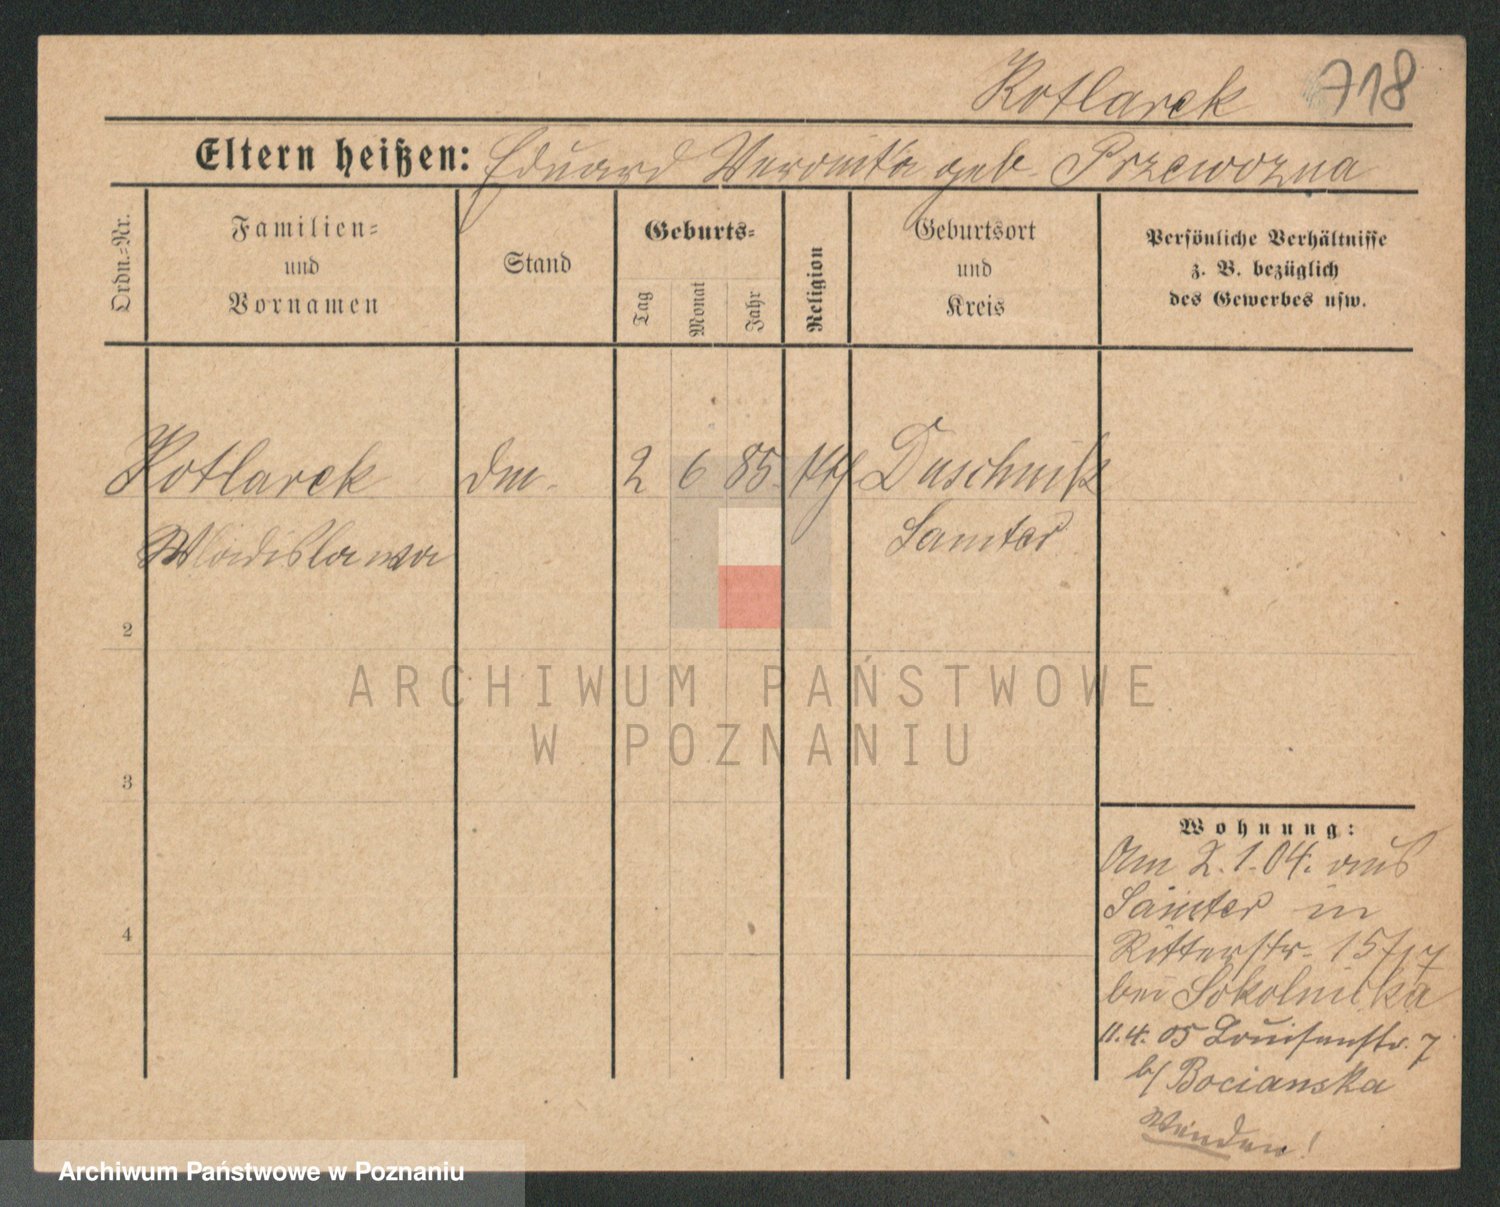 Kotlarek 718
Eltern heißen: Eduard Veronika geb. Przewozna
Ordn.-Nr.
Familien-
und
Vornamen
Stand
Geburts-
Tag
Monat
Jahr
Religion
Geburtsort
und
Kreis
Persönliche Verhältnisse
z. B. bezüglich
des Gewerbes usw.
Kotlarek dm. 2 6 85. kth Duschnik
Wladislawa Samter
2
3
4
ARCHIWUM PAŃSTWOWE
W POZNANIU
Wohnung:
Am 2.1.04. aus
Samter in
Ritterstr. 15
bei Sokolnicka
11.4.05 Louisenstr. 7
b/ Bocianska
Wenden!
Archiwum Państwowe w Poznaniu